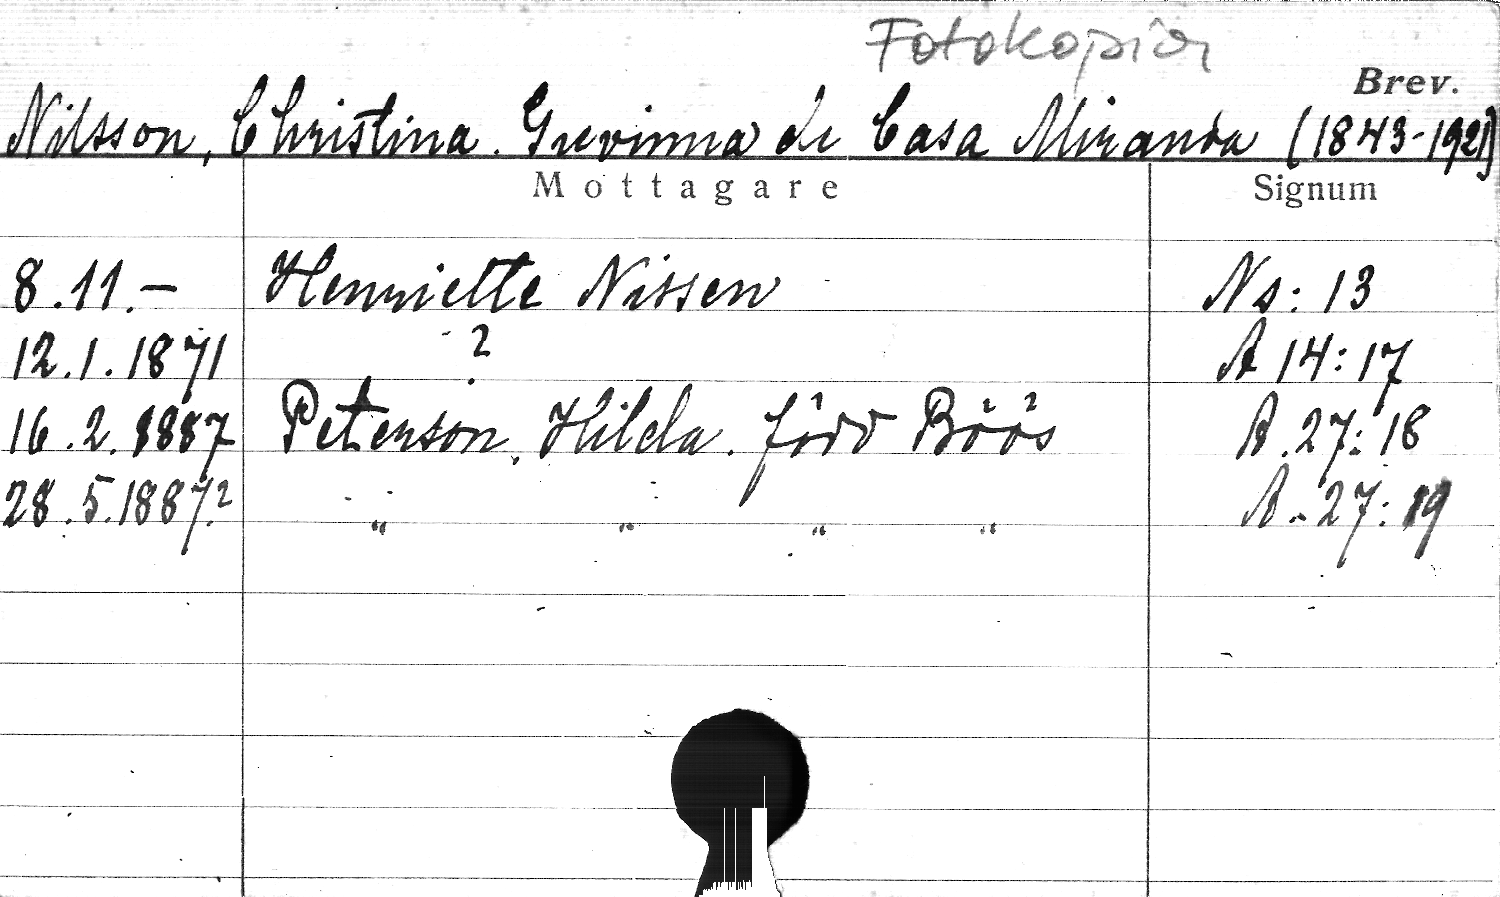 Fotokopior
Brev.
Nilsson, Christina. Grevinna de Casa Miranda (1843-1921)
Mottagare Signum
8.11.— Henriette Nissen Ns: 13
12.1.1871 ? A 14:17
16.2.1887 Peterson, Hilda. född Böös A.27:18
28.5.1887? " " " " A.27:19